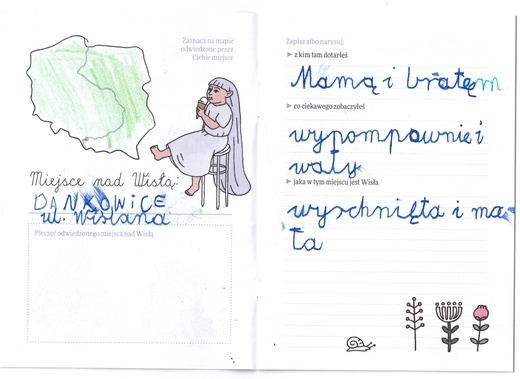 Zaznacz na mapie
odwiedzone przez
Ciebie miejsce
Miejsce nad Wisłą:
DANKOWICE
ul. Wiślana
Pieczęć odwiedzonego miejsca nad Wisłą
Zapisz albo narysuj:
▸ z kim tam dotarłeś
Mamą i bratem
▸ co ciekawego zobaczyłeś
wypompownie i
wały
▸ jaka w tym miejscu jest Wisła
wyschnięta i ma
ła